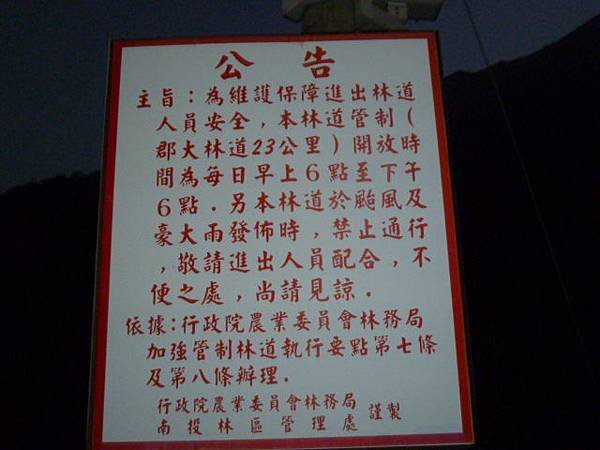 公告
主旨：為維護保障進出林道
人員安全，本林道管制（
郡大林道23公里）開放時
間為每日早上6點至下午
6點．另本林道於颱風及
豪大雨發佈時，禁止通行
，敬請進出人員配合，不
便之處，尚請見諒．
依據：行政院農業委員會林務局
加強管制林道執行要點第七條
及第八條辦理．
行政院農業委員會林務局
南投林區管理處 謹製